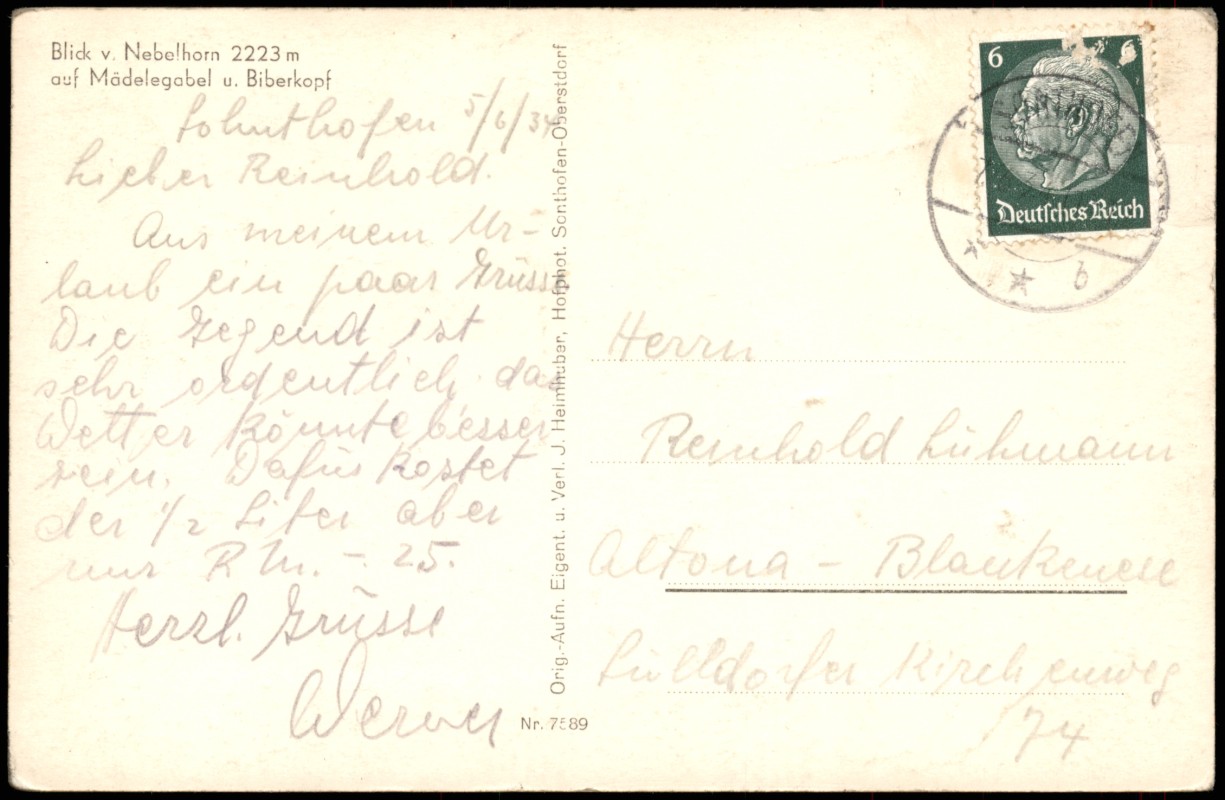 Blick v. Nebelhorn 2223 m
auf Mädelegabel u. Biberkopf
Sohnthofen 5/6/34
Lieber Reinhold.
Aus meinem Ur-
laub ein paar Grüsse
Die Gegend ist
sehr ordentlich das
Wetter könnte besser
sein. Dafür kostet
der 1/2 Liter aber
nur RM. -.25.
Herzl. Grüsse
Werner
Orig.-Aufn. Eigent. u. Verl. J. Heimhuber, Hofphot. Sonthofen-Oberstdorf
Nr. 7589
6 6
Deutsches Reich
* * b
Herrn
Reinhold Lühmann
Altona - Blankenese
Sülldorfer Kirchenweg
74